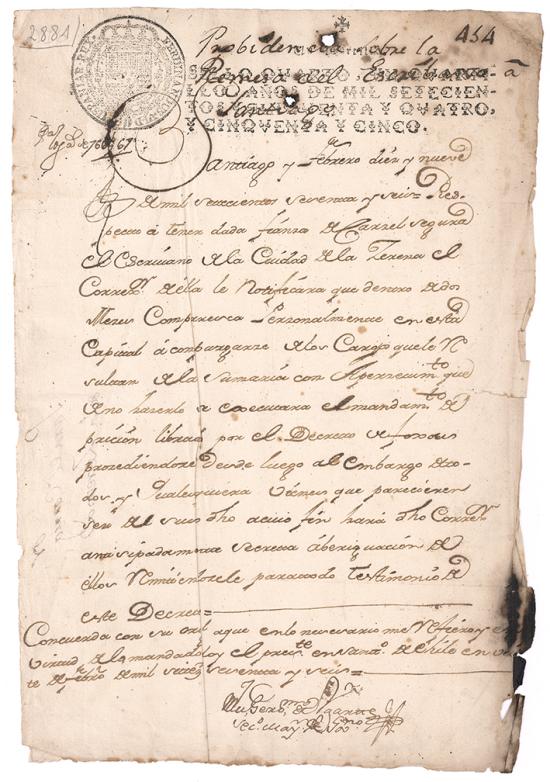 2881
454
Probidencia sobre la
Remesa del Escribano a
Santiago
SELLO QUARTO, UN QUARTI-
LLO, AÑOS DE MIL SETECIEN-
TOS CINQVENTA Y QUATRO,
Y CINQVENTA Y CINCO.
Santiago y febrero diez y nueve
de mil setecientos setenta y seis= Res
pecto á tener dada fianza de Carzel segura
el Escrivano de la Cuidad de la Serena el
Corregr. de ella le Notificara que dentro de dos
Meses Comparesca Personalmente en esta
Capital á conpurgarse de los Cargos que le Re
sultan de la sumaria con Apercevimto. que
de no hacerlo se executara el mandamto. de
pricion librado por el Decreto de fojas
procediendose desde luego al embargo de to-
dos y qualesquiera vienes que parecieren
ser del suso dho á cuio fin hará dho Corregr.
antisipadamente secreta aberiguacion de
ellos Remitiendosele para todo Testimonio de
este Decreto=
Concuerda con su oril. a que en lo necesario me Refiero y en
virtud de lo mandado doy el preste. en Santo. de Chile en
te de febro. de mil setezs. setenta y seis=
Ugarte